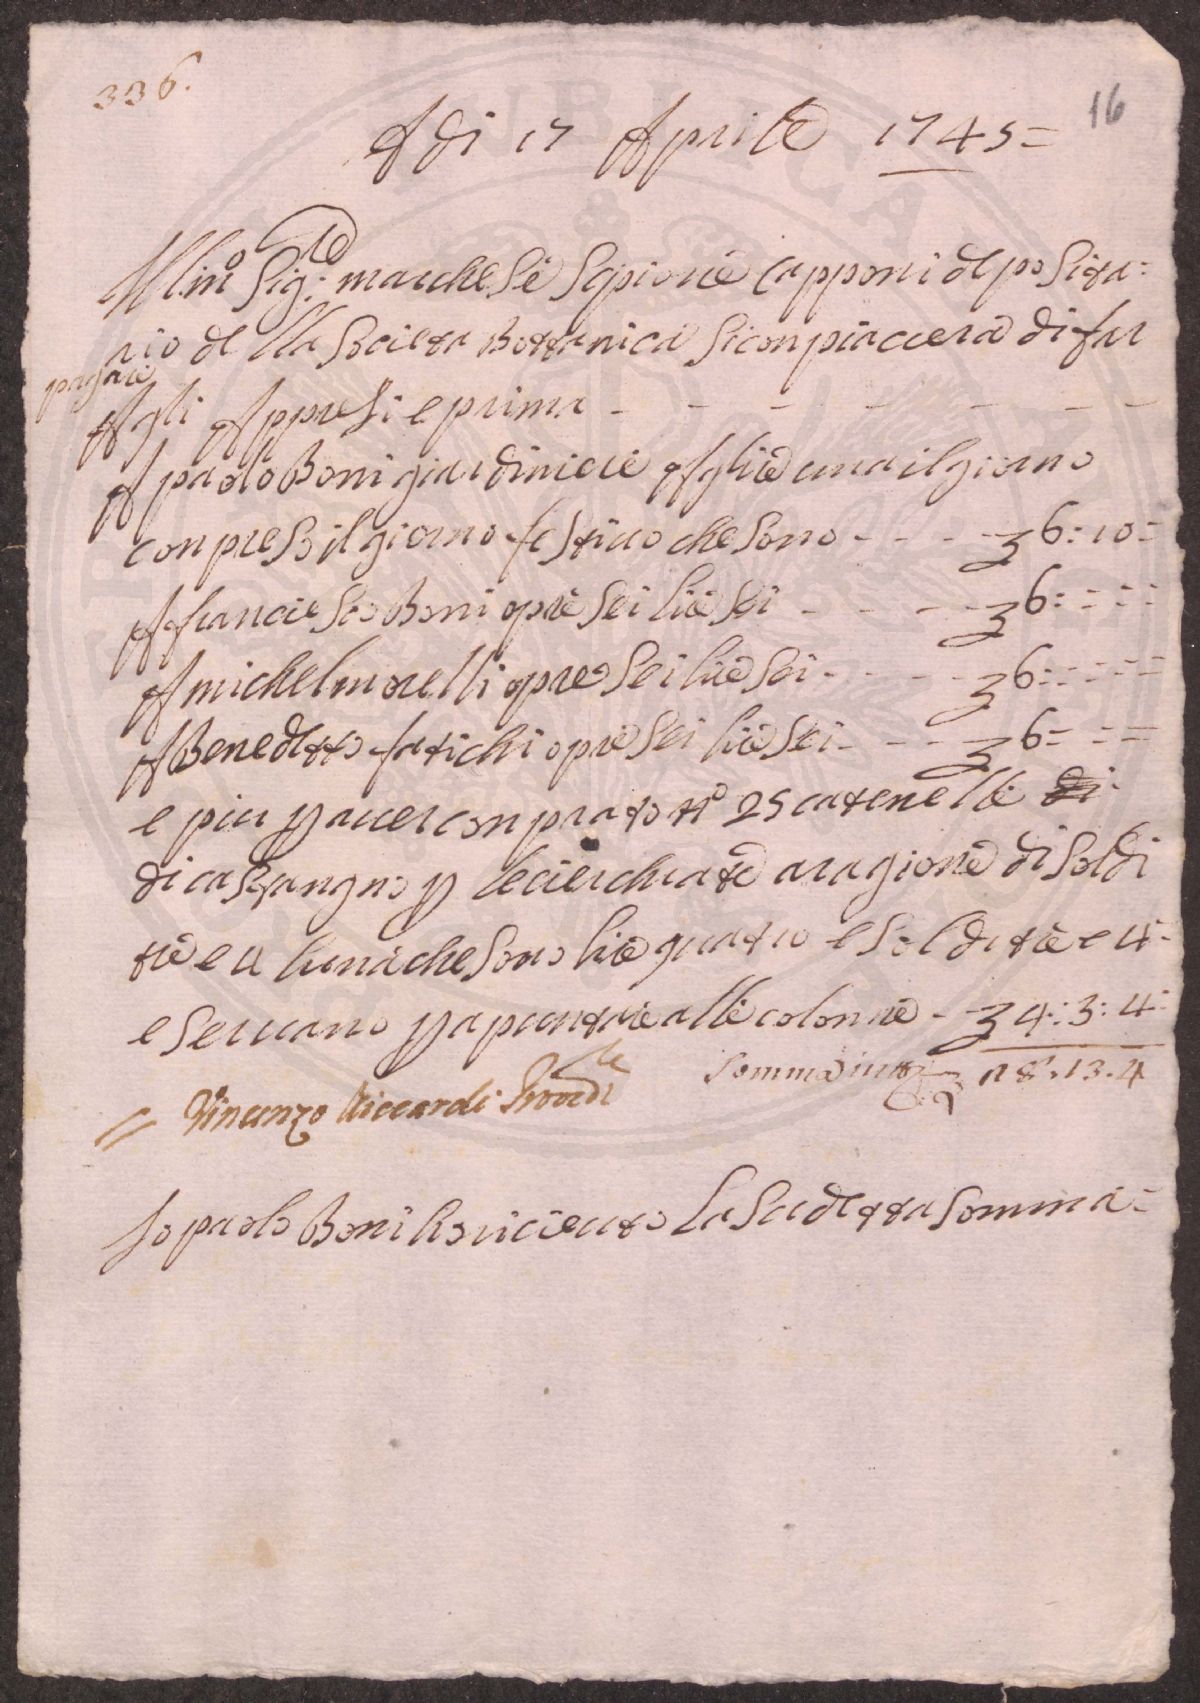 336.
16
A di 17 Aprile 1745=
Ill.mo Sig.re marchese Scipione Capponi deposita=
rio della Societa Bottanica si conpiaccera di far
pagare
Agli Appresi e prima - - - - - - -
A paolo Boni giardiniere A lire una il giorno
conpreso il giorno festiuo che sono - - - - 6:10=
A franciesco Boni opre sei lire sei - - - - 6:=:=
A michel morelli opre sei lire sei - - - - 6:=:=
A Benedetto fatichi opre sei lire sei - - - 6=:=
e piu p auer conprato no 25 catenelle di
di castangno p le cierchiate a ragione di soldi
tre e 4 l'una che sono lire quatro e soldi tre e 4=
e seruano p apuntare alle colonne - 4:3:4=
Somma in tto 28.13.4
= Vincenzo Riccardi Provdre
Io paolo Boni ho riceuto La sudetta somma=